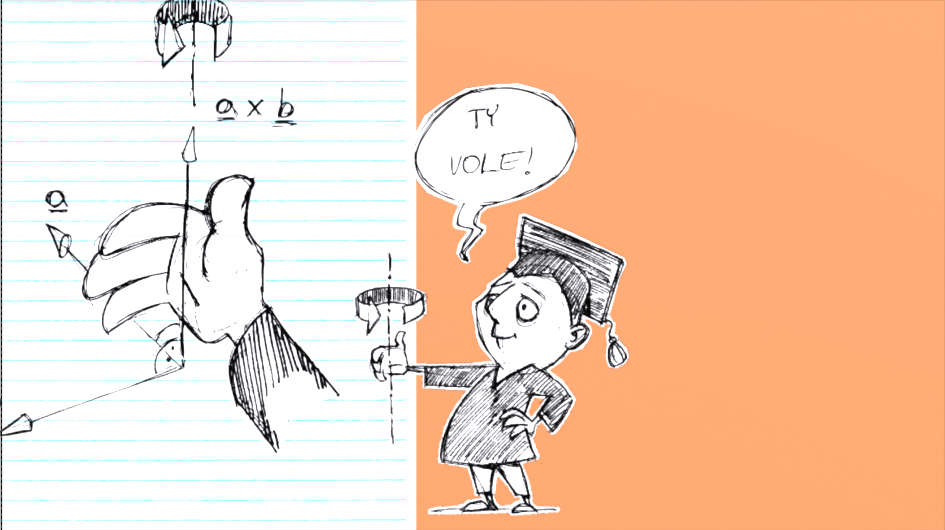 a x b
a
TY
VOLE!